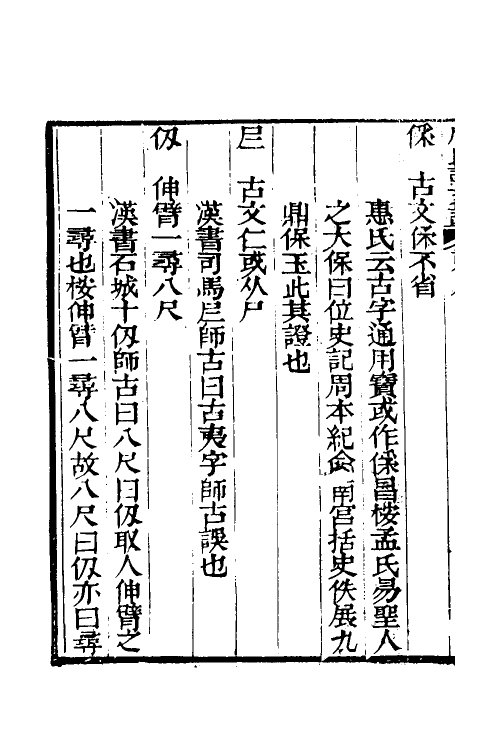 保 古文保不省
惠氏云古字通用寶或作保昌桉孟氏易聖人
之大保曰位史記周本紀命南宮括史佚展九
鼎保玉此其證也
𡰥 古文仁或从尸
漢書司馬𡰥師古曰古夷字師古誤也
仭 伸臂一尋八尺
漢書石城十仭師古曰八尺曰仭取人伸臂之
一尋也桉伸臂一尋八尺故八尺曰仭亦曰尋